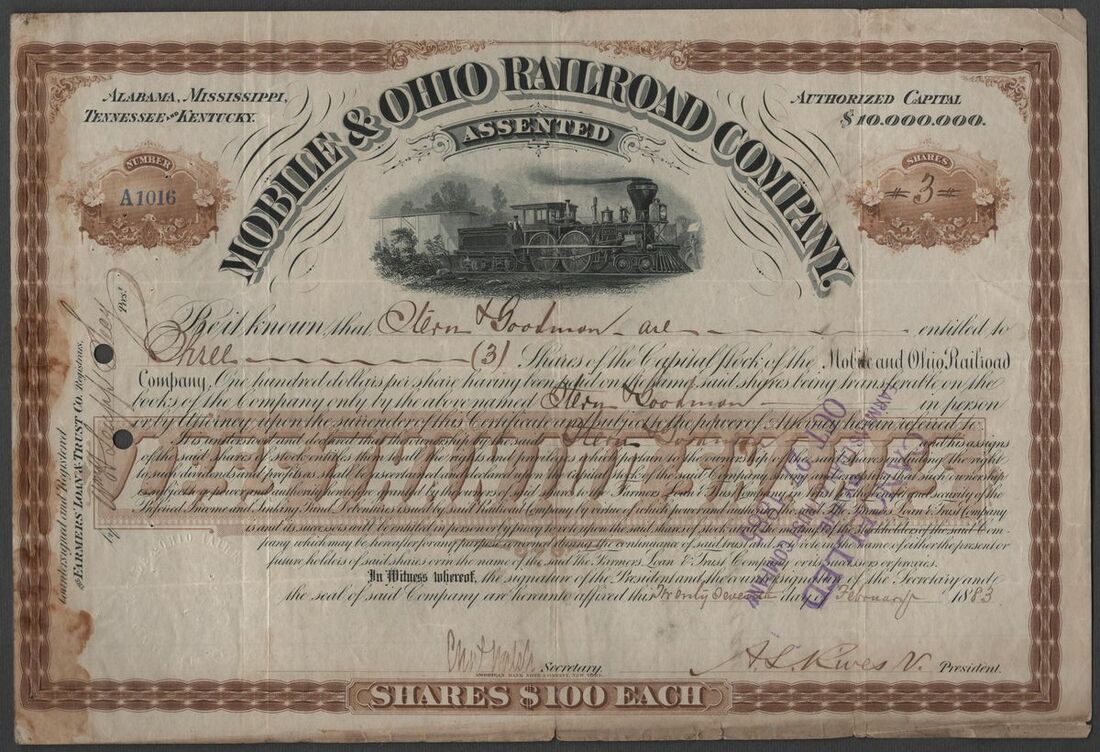 MOBILE & OHIO RAILROAD COMPANY.
ASSENTED
ALABAMA, MISSISSIPPI,
TENNESSEE AND KENTUCKY.
AUTHORIZED CAPITAL
$10.000.000.
NUMBER
A1016
SHARES
3
Be it known, that Stern & Goodman are entitled to
Three (3) Shares of the Capital Stock of the Mobile and Ohio Railroad
Company, One hundred dollars per share having been paid on the same said shares being transferable on the
books of the Company only by the above named Stern & Goodman in person
or by Attorney, upon the surrender of this Certificate and subject to the power of Attorney herein referred to
It is understood and declared that the ownership by the said Stern & Goodman and his assigns
of the said shares of stock entitles them to all the rights and privileges which pertain to the ownership of the said shares including the right
to such dividends and profits as shall be ascertained and declared upon the capital stock of the said Company, save and excepting that such ownership
is subject to a power and authority heretofore granted by the owners of said shares to the Farmers Loan & Trust Company
Preferred Income and Sinking Fund Debentures issued by said Railroad Company by virtue of which power and authority the said The Farmers Loan & Trust Company
and its successors will be entitled in person or by proxy to vote upon the said shares of stock
pany which may be hereafter for any purpose convened during the continuance of said trust and to vote in the name of either the present or
future holders of said shares or in the name of the said the Farmers, Loan & Trust Company or its successors or proxies.
In Witness whereof, the signature of the President and the countersignature of the Secretary and
the seal of said Company are hereunto affixed this Twenty Seventh day of February 1883
Secretary.
President.
AMERICAN BANK NOTE COMPANY, NEW YORK.
SHARES $100 EACH
Countersigned and Registered
THE FARMERS' LOAN & TRUST CO. Registrars,
by
Prest.
CANCELLED
OCT 27 1885
FARMERS' LOAN & TRUST COMPANY